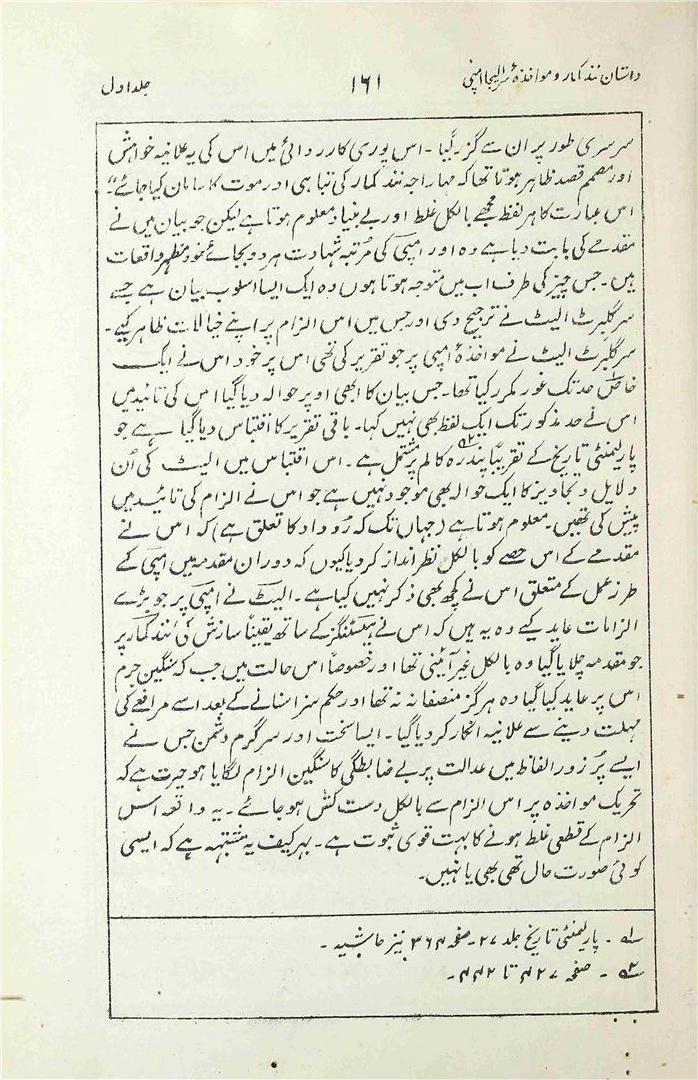 داستان نند کمار و مواخذۂ سر الیجا امپی ۱۶۱ جلد اول
سرسری طور پر ان سے گزر گیا ۔ اس پوری کارروائی میں اس کی یہ علانیہ خواہش
اور مصمم قصد ظاہر ہوتا تھا کہ مہاراجہ نند کمار کی تباہی اور موت کا سامان کیا جائے"
اس عبارت کا ہر لفظ مجھے بالکل غلط اور بے بنیاد معلوم ہوتا ہے لیکن جو بیان میں نے
مقدمے کی بابت دیا ہے وہ اور امپی کی مرتبہ شہادت ہر دو بجائے خود مظہر واقعات
ہیں ۔ جس چیز کی طرف اب میں متوجہ ہوتا ہوں وہ ایک ایسا اسلوب بیان ہے جسے
سر گلبرٹ الیٹ نے ترجیح دی اور جس میں اس الزام پر اپنے خیالات ظاہر کیے۔
سر گلبرٹ الیٹ نے مواخذۂ امپی پر جو تقریر کی تھی اس پر خود اس نے ایک
خاص حد تک غور مکرر کیا تھا۔ جس بیان کا ابھی اوپر حوالہ دیا گیا اس کی تائید میں
اس نے حد مذکور تک ایک لفظ بھی نہیں کہا۔ باقی تقریر کا اقتباس دیا گیا ہے جو
پارلیمنٹی تاریخ کے تقریباً پندرہ کالم پر مشتمل ہے ۔ اس اقتباس میں الیٹ کی اُن
دلایل و تجاویز کا ایک حوالہ بھی موجود نہیں ہے جو اس نے الزام کی تائید میں
پیش کی تھیں۔ معلوم ہوتا ہے (جہاں تک کہ رُوداد کا تعلق ہے) کہ اس نے
مقدمے کے اس حصے کو بالکل نظر انداز کر دیا کیوں کہ دوران مقدمہ میں امپی کے
طرز عمل کے متعلق اس نے کچھ بھی ذکر نہیں کیا ہے ۔ الیٹ نے امپی پر جو بڑے
الزامات عاید کیے وہ یہ ہیں کہ اس نے ہیسٹنگز کے ساتھ یقیناً سازش کی، نند کمار پر
جو مقدمہ چلایا گیا وہ بالکل غیر آئینی تھا اور خصوصاً اس حالت میں جب کہ سنگین جرم
اس پر عاید کیا گیا وہ ہرگز منصفانہ نہ تھا اور حکم سزا سنانے کے بعد اسے مرافعے کی
مہلت دینے سے علانیہ انکار کر دیا گیا ۔ ایسا سخت اور سرگرم دشمن جس نے
ایسے پُر زور الفاظ میں عدالت پر بے ضابطگی کا سنگین الزام لگایا ہو حیرت ہے کہ
تحریک مواخذہ پر اس الزام سے بالکل دست کش ہو جائے ۔ یہ واقعہ اس
الزام کے قطعی غلط ہونے کا بہت قوی ثبوت ہے ۔ بہر کیف یہ مشتبہ ہے کہ ایسی
کوئی صورت حال تھی بھی یا نہیں ۔
۱؎ ۔ پارلیمنٹی تاریخ جلد ۲۷ ۔ صفحہ ۳۶۴ نیز حاشیہ ۔
۲؎ ۔ صفحہ ۴۲۷ تا ۴۴۲ ۔